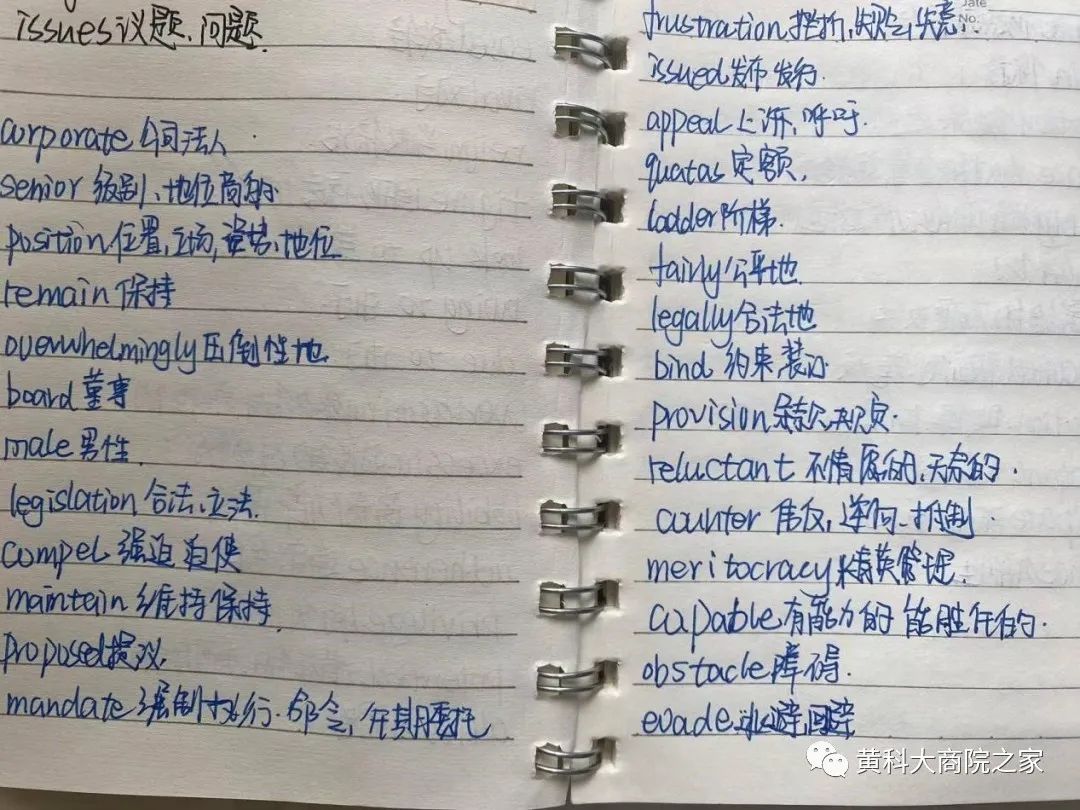 issues 议题、问题.
corporate 公司法人
senior 级别、地位高的
position 位置,立场,姿势、地位
remain 保持
overwhelmingly 压倒性地
board 董事
male 男性
legislation 合法、立法.
compel 强迫 迫使
maintain 维持 保持
proposed 提议
mandate 强制执行. 命令, 任期 委托
Date
No.
frustration 挫折,失败,失意.
issued 发布 发行.
appeal 上诉、呼吁.
quatas 定额,
ladder 阶梯.
fairly 公平地.
legally 合法地
bind 约束 装订
provision 条款,规定.
reluctant 不情愿的,无奈的.
counter 违反,逆向、抑制.
meritocracy 精英管理.
capable 有能力的 能胜任的.
obstacle 障碍.
evade 逃避,回避
黄科大商院之家